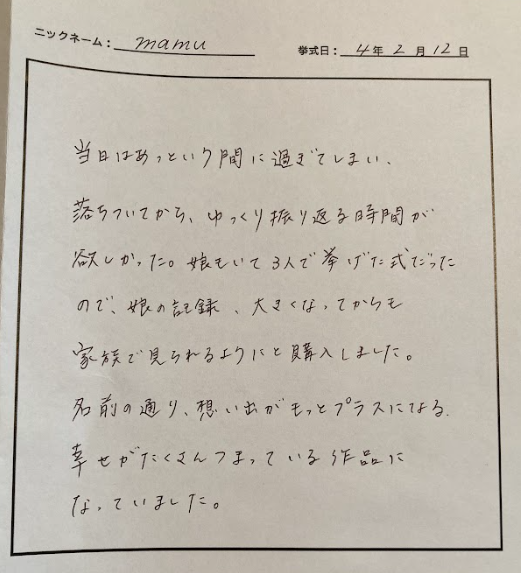 ニックネーム： mamu 挙式日： 4年 2月 12日
当日はあっという間に過ぎてしまい、
落ちついてから、ゆっくり振り返る時間が
欲しかった。娘もいて3人で挙げた式だった
ので、娘の記録、大きくなってからも
家族で見られるようにと購入しました。
名前の通り、想い出がもっとプラスになる、
幸せがたくさんつまっている作品に
なっていました。